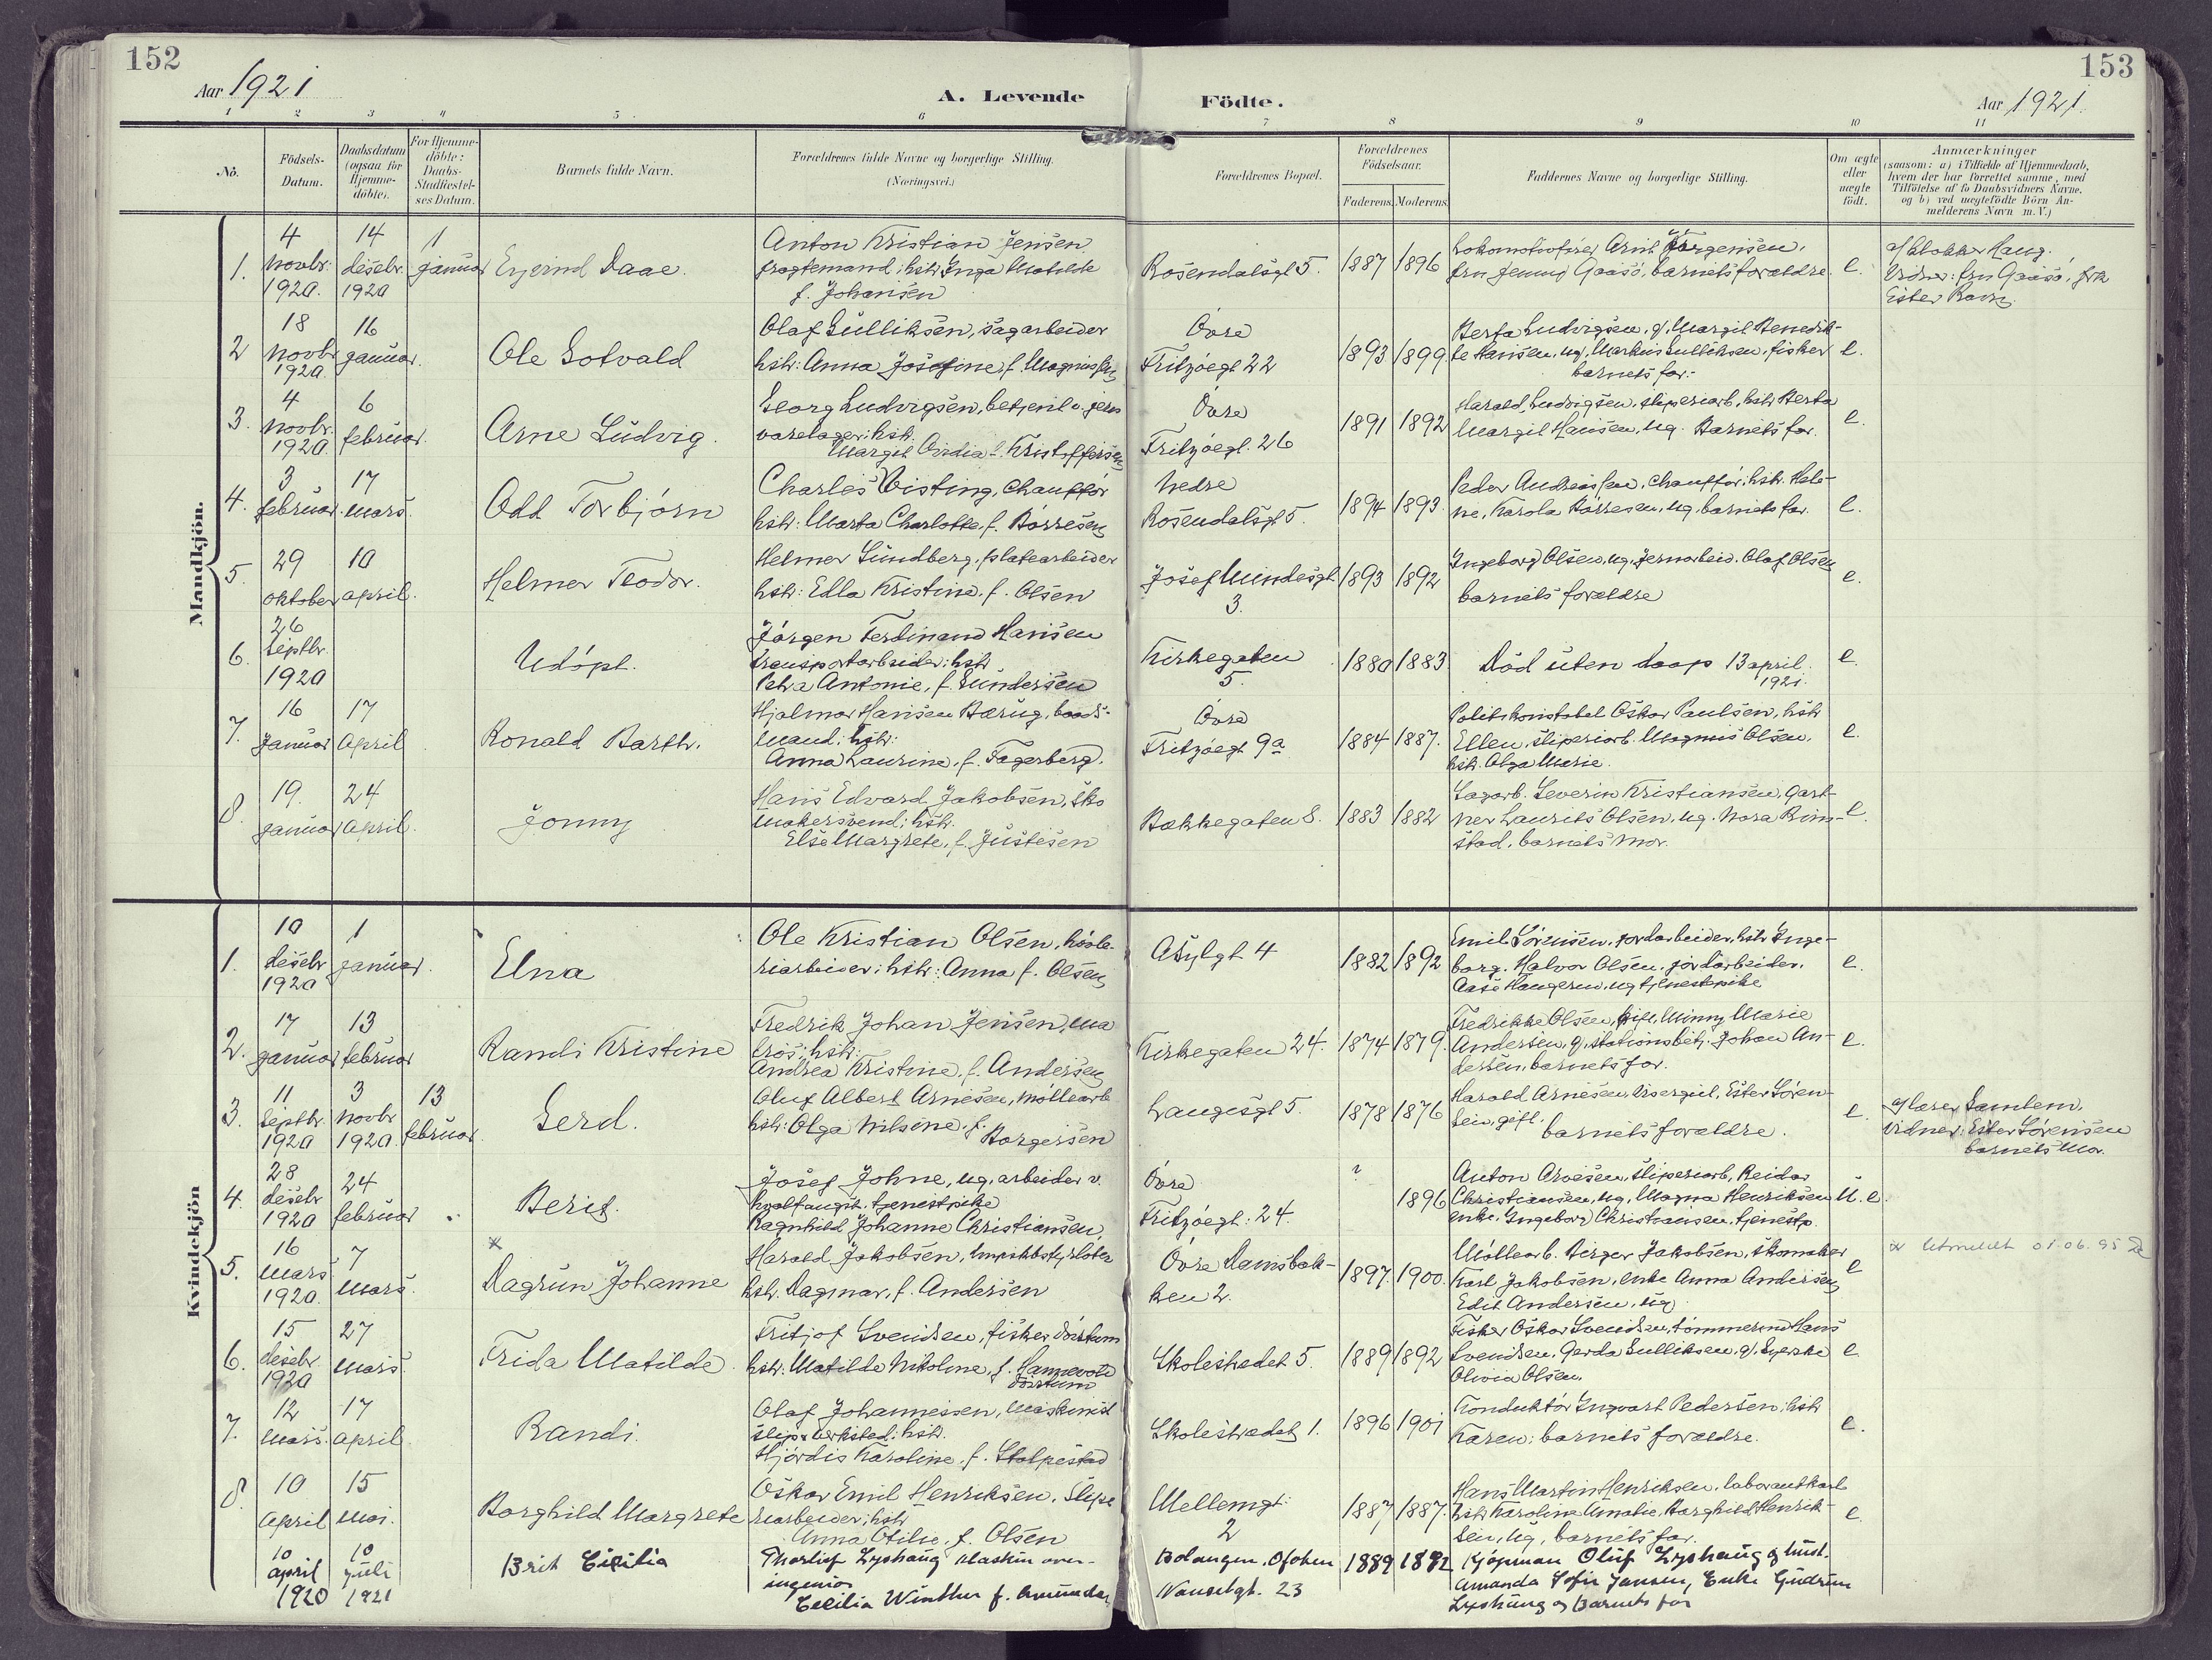 152
153
Aar 1921
A. Levende
Födte.
Aar 1921.
1 2 3 4 5 6 7 8 9 10 11
No.
Födsels-
Datum.
Daabsdatum
(ogsaa for
Hjemme-
döbte).
For Hjemme-
döbte:
Daabs-
Stadfæstel-
ses Datum.
Barnets fulde Navn.
Forældrenes fulde Navne og borgerlige Stilling.
(Næringsvei.)
Forældrenes Bopæl.
Forældrenes
Födselsaar.
Faderens.
Moderens.
Faddernes Navne og borgerlige Stilling.
Om ægte
eller
uægte
födt.
Anmærkninger
(saasom: a) i Tilfælde af Hjemmedaab,
hvem der har forrettet samme, med
Tilföielse af to Daabsvidners Navne,
og b) ved uægtefödte Börn An-
melderens Navn m. V.)
Mandkjön.
1.
4
novbr.
1920.
14
desebr.
1920
1
januar
Eyvind Daae.
Anton Kristian Jensen
fragtemand; hstr Inga Matilde
f. Johansen
Rosendalsgt 5.
1887
1896
Lokomotivfører Arnt Jørgensen,
fru Jenny Gaasö, barnets forældre.
e.
a/ klokker Haug.
Vidner: fru Gaasö, frk
Ester
2
18
novbr
1920
16
januar.
Ole Gotvald
Olaf Gulliksen, sagarbeider
hstr: Anna Josefine, f. Magnussen
Övre
Fritzöegt 22
1893
1899.
Berta Ludvigsen, g, Margit Benedik-
te Hansen, ug, Markus Gulliksen, fisker
barnets far.
e.
3.
4
novbr.
1920
6
februar.
Arne Ludvig.
Georg Ludvigsen, betjent v. jern
varelager; hstr.
Margit f. Kristoffersen
Övre
Fritzöegt. 26
1891
1892
Harald Ludvigsen, sliperiarb, hstr Berta
Margit Hansen, ug. Barnets far.
e.
4.
3
februar.
17
mars.
Odd Torbjörn
Charles Wisting, chaufför
hstr: Marta Charlotte, f. Börresen
Nedre
Rosendalsgt 5.
1894
1893.
Peder Andreassen, chauffór; hstr. Hele-
ne, Karola Börresen, ug, barnets far.
e.
5.
29
oktober
10
april.
Helmer Teodor.
Helmer Sundberg, platearbeider
hstr: Edla Kristine, f. Olsen
Josef Mindesgt
3.
1893
1892
Ingeborg Olsen, ug, jernarbeid. Olaf Olsen
barnets forældre
e.
6.
26
septbr.
1920
Udöpt.
Jörgen Ferdinand Hansen
transportarbeider; hstr
Petra Antonie, f. Gundersen
Kirkegaten
5.
1880
1883.
Död uten daap 13 april.
1921.
e.
7.
16
januar
17
april
Ronald Barth.
Hjalmar Hansen Bærug, baads-
mand; hstr:
Anna Laurine, f. Fagerberg.
Övre
Fritzöegt 9a
1884
1887.
Politikonstabel Oskar Paulsen, hstr
Ellen, sliperiarb. Magnus Olsen,
hstr. Olga Marie.
e.
8.
19.
januar
24
april.
Jonny
Hans Edvard Jakobsen, sko
makersvend; hstr.
Else Margrete, f. Justesen
Bækkegaten 8.
1883
1882
Sagarb. Severin Kristiansen, Gart-
ner Laurits Olsen, ug. Nora Rim-
stad, barnets mor.
e.
Kvindekjön
1.
10
desebr
1920
1
januar.
Elna
Ole Kristian Olsen, hövle-
riarbeider; hstr: Anna f. Olsen
Asylgt 4
1882
1892
Emil Sörensen, jordarbeider, hstr Inge-
borg. Halvor Olsen, jordarbeider.
Aase Haugeren, ug tjenestepike
e.
2.
17
januar
13
februar
Randi Kristine
Fredrik Johan Jensen, ma
tros; hstr:
Andrea Kristine, f. Andersen
Kirkegaten 24.
1874
1879.
Fredrikke Olsen, gift, Minny Marie
Andersen, g, stationsbetj. Johan An-
dersen, barnets far.
e.
3.
11
septbr
1920
3
novbr
1920.
13
februar.
Gerd.
Oluf Albert Arnesen, möllearb
hstr: Olga Nilsine, f.
Borgersen
Langesgt 5.
1878
1876
Harald Arnesen, visergut, Ester Sören-
sen, gift.
barnets forældre.
e.
a/ lærer Samlem.
Vidner: Ester Sörensen
barnets mor.
4.
28
desebr
1920
24
februar
Berit.
Josef Johne, ug. arbeider v.
hvalfangst. tjenestpike
Ragnhild Johanne Christiansen.
Övre
Fritzöegt. 24.
?
1896
Anton Arvesen, sliperiarb, Reidar
Christiansen, ug, Magna Henriksen
enke, Ingeborg Christiansen, tjenestp.
u. e.
5.
16
mars
1920.
7
mars.
x
Dagrun Johanne
Harald Jakobsen,
hstr. Dagmar, f. Andersen
Övre Damsbak-
ken 2.
1897.
1900.
Möllearb. Birger Jakobsen, skomaker
Karl Jakobsen, enke Anna Andersen
Edit Andersen, ug
e
x Utmeldt 01.06.95
6.
15
desebr.
1920
27
mars.
Frida Matilde.
Fritjof Svendsen, fisker
hstr. Matilde Nikoline, f. Hannevold
Skolestrædet 5.
1889
1892
Fisker Oskar Svendsen, tömmermd Hans
Svendsen, Gerda Gulliksen, g, Syerske
Olivia Olsen.
e.
7.
12
mars.
17
april.
Randi.
Olaf Johannessen, maskinist
slip. verksted; hstr.
Hjördis Karoline, f. Stolpestad
Skolestrædet 1.
1896
1901
Konduktör Ingvart Pedersen; hstr
Karen; barnets forældre.
e.
8.
10
april
15
mai.
Borghild Margrete
Oskar Emil Henriksen, slipe
riarbeider; hstr
Anna Otilie, f. Olsen
Mellemgt.
2
1887
1887.
Hans Martin Henriksen, laborantkarl
hstr Karoline Amalie, Borghild Henrik-
sen, ug, barnets far.
e.
10
april
1920
10
juli
1921
Brit Cecilia
Thorleif Lyshaug Maskin over-
ingeniör
Cecilia Winther f. Amundsen
Bolangen, Ofoten
Nansetgt. 23
1889
1892
Kjöpman Oluf Lyshaug og hust.
Amanda Sofie Jansen, Enke Gudrun
Lyshaug og Barnets far